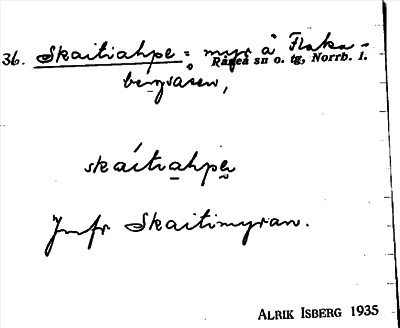 36. Skaitiahpe: myr å Flaka-
Råneå sn o. tg, Norrb. l.
bergsasen,
skaítiahpe
Jmfr Skaitimyran.
ALRIK ISBERG 1935